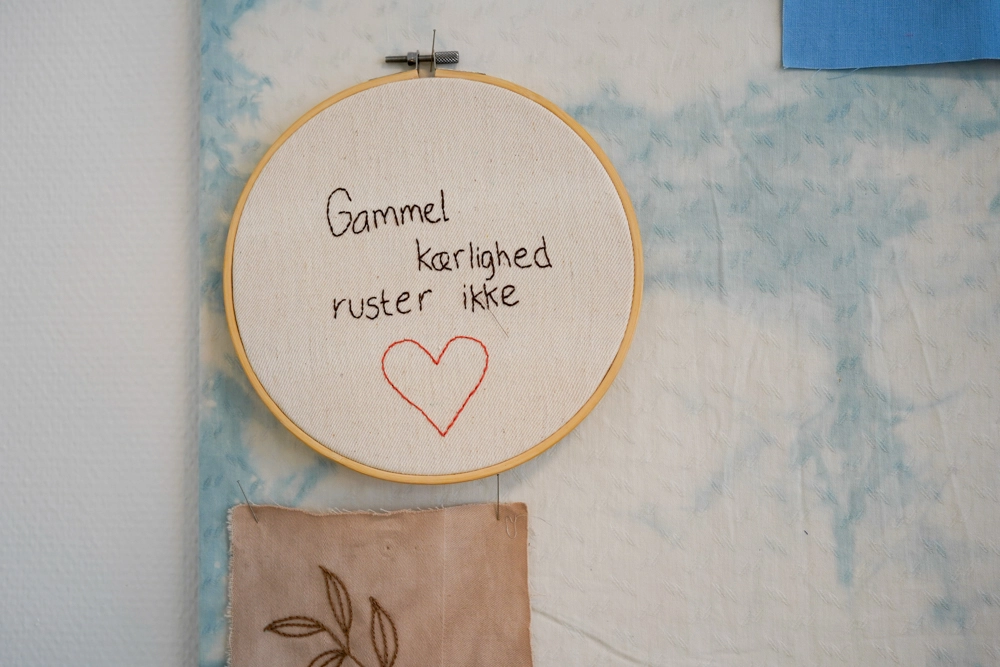 Gammel
kærlighed
ruster ikke